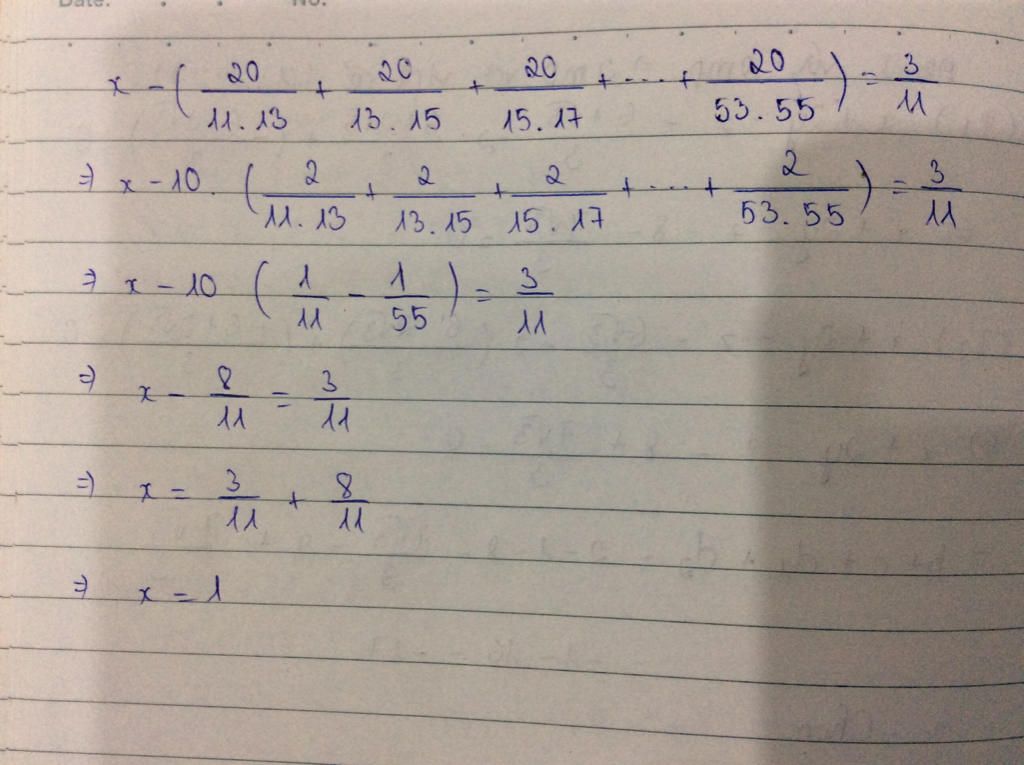 Date: No.
x - ( 20/11.13 + 20/13.15 + 20/15.17 + ... + 20/53.55 ) = 3/11
⇒ x - 10. ( 2/11.13 + 2/13.15 + 2/15.17 + ... + 2/53.55 ) = 3/11
⇒ x - 10 ( 1/11 - 1/55 ) = 3/11
⇒ x - 8/11 = 3/11
⇒ x = 3/11 + 8/11
⇒ x = 1